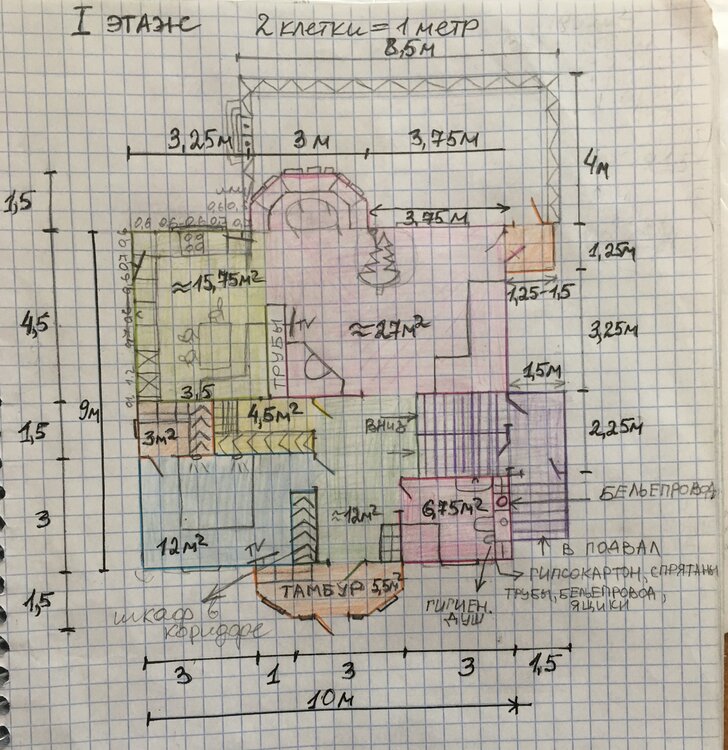 I ЭТАЖ
2 клетки = 1 метр
8,5м
3,25м
3 м
3,75м
4м
1,5
3,75м
0,6 0,6 0,6 0,7 0,6
1,25м
≈15,75м²
1,25-1,5
ТРУБЫ
TV
≈27м²
3,25м
4,5
9м
3,5
1,5м
3м²
4,5м²
ВНИЗ
2,25м
1,5
БЕЛЬЕПРОВОД
≈12м²
6,75м²
3
12м²
TV
В ПОДВАЛ
ТАМБУР 5,5м²
ГИПСОКАРТОН, СПРЯТАНЫ
ТРУБЫ, БЕЛЬЕПРОВОД,
ЯЩИКИ
1,5
шкаф в
коридоре
ГИГИЕН.
ДУШ
3
1
3
3
1,5
10м